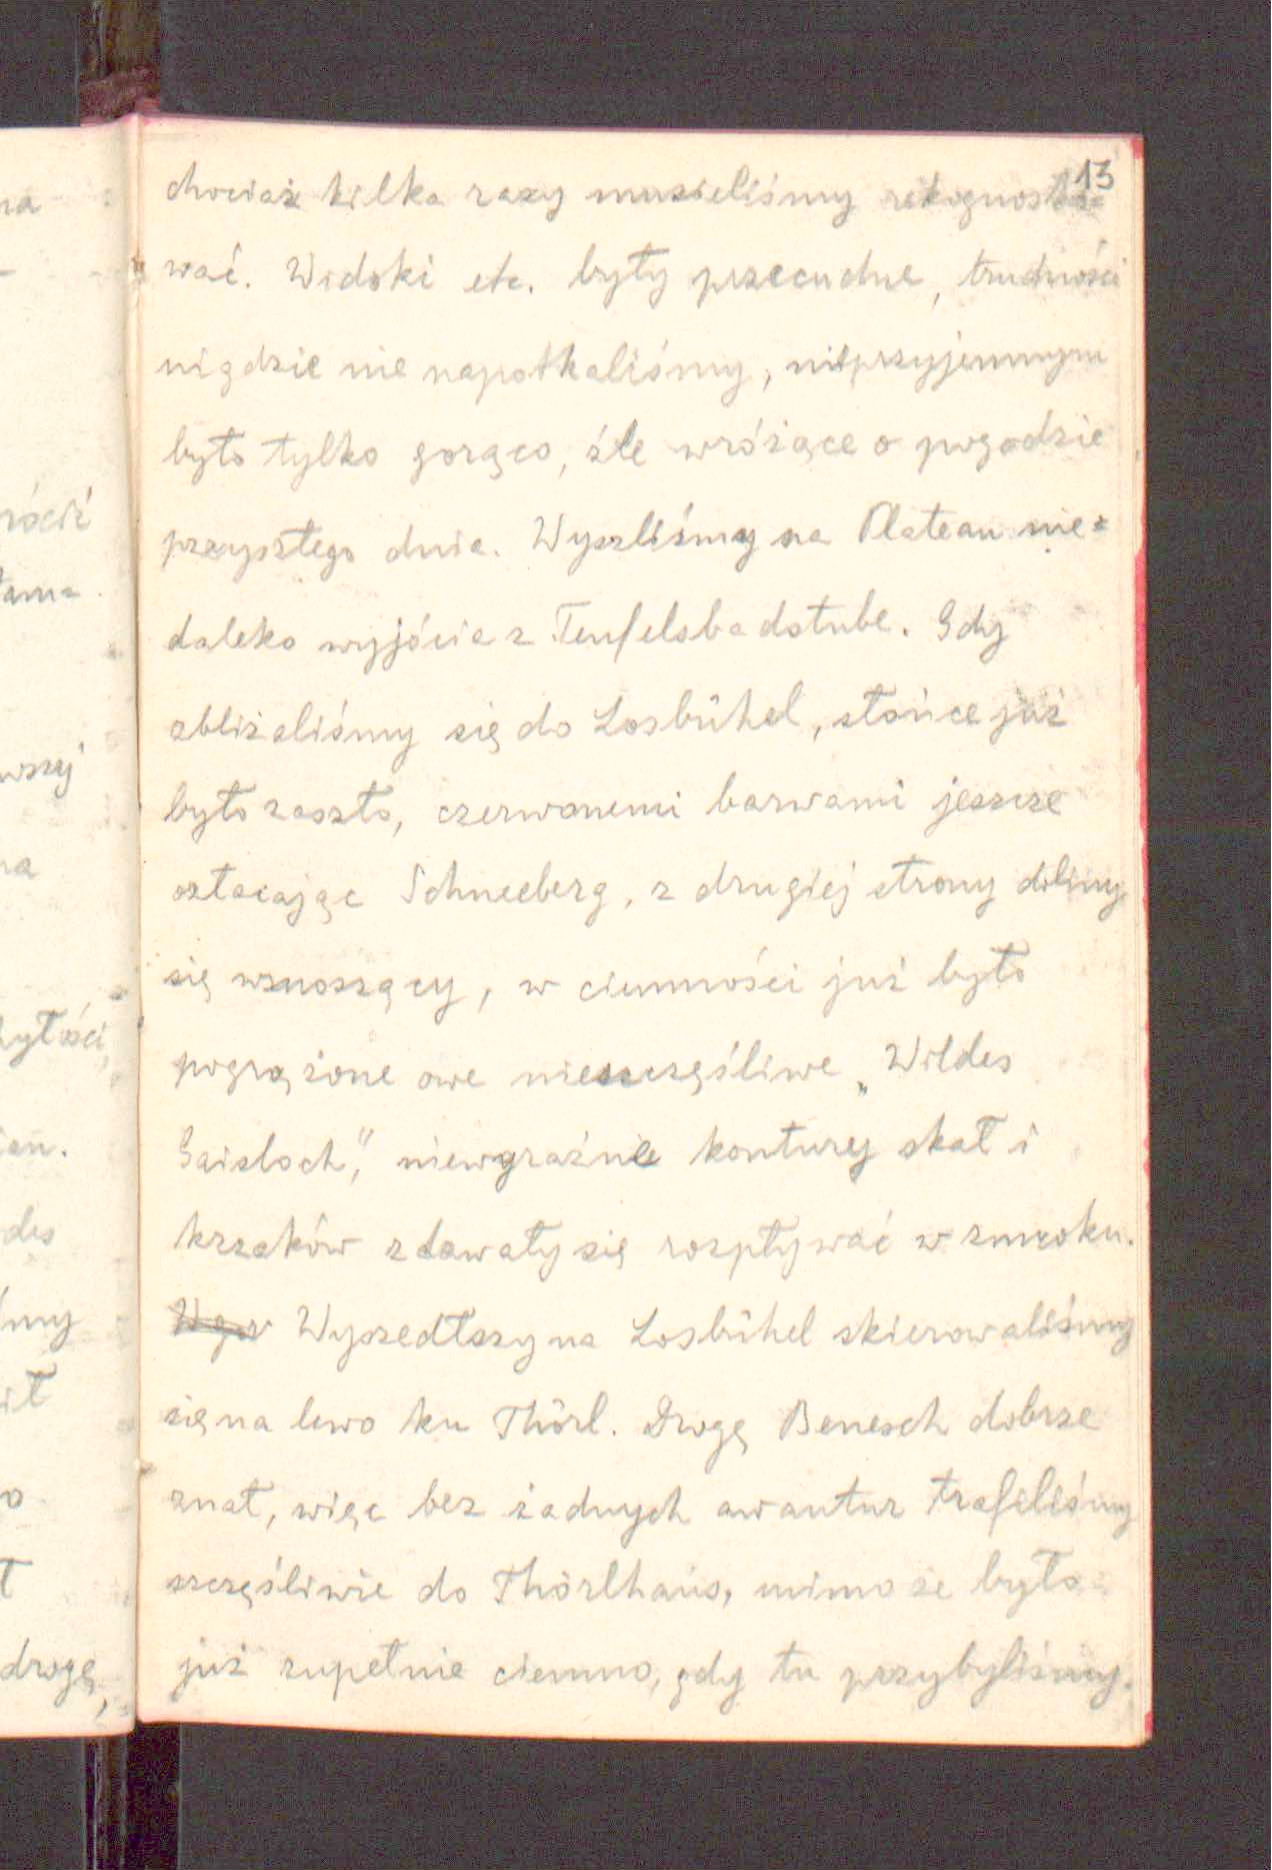 13
chociaż kilka razy musieliśmy rekognosko=
wać. Widoki etc. były przecudne, trudności
nigdzie nie napotkaliśmy, nieprzyjemnym
było tylko gorąco, źle wróżące o pogodzie
przyszłego dnia. Wyszliśmy na Plateau nie=
daleko wyjścia z Teufelsbadstube. Gdy
zbliżaliśmy się do Losbühel, słońce już
było zaszło, czerwonemi barwami jeszcze
ozłacając Schneeberg, z drugiej strony doliny
się wznoszący, w ciemności już było
pogrążone owe nieszczęśliwe „Wildes
Gaisloch,” niewyraźnie kontury skał i
krzaków zdawały się rozpływać w zmroku.
Wyszedłszy na Losbühel skierowaliśmy
się na lewo ku Thörl. Drogę Benesch dobrze
znał, więc bez żadnych awantur trafiliśmy
szczęśliwie do Thörlhaus, mimo że było
już zupełnie ciemno, gdy tu przybyliśmy.
na
rócić
łam=
wszej
na
hyłości,
ian.
des
śmy
ił
o
ł
drogę,